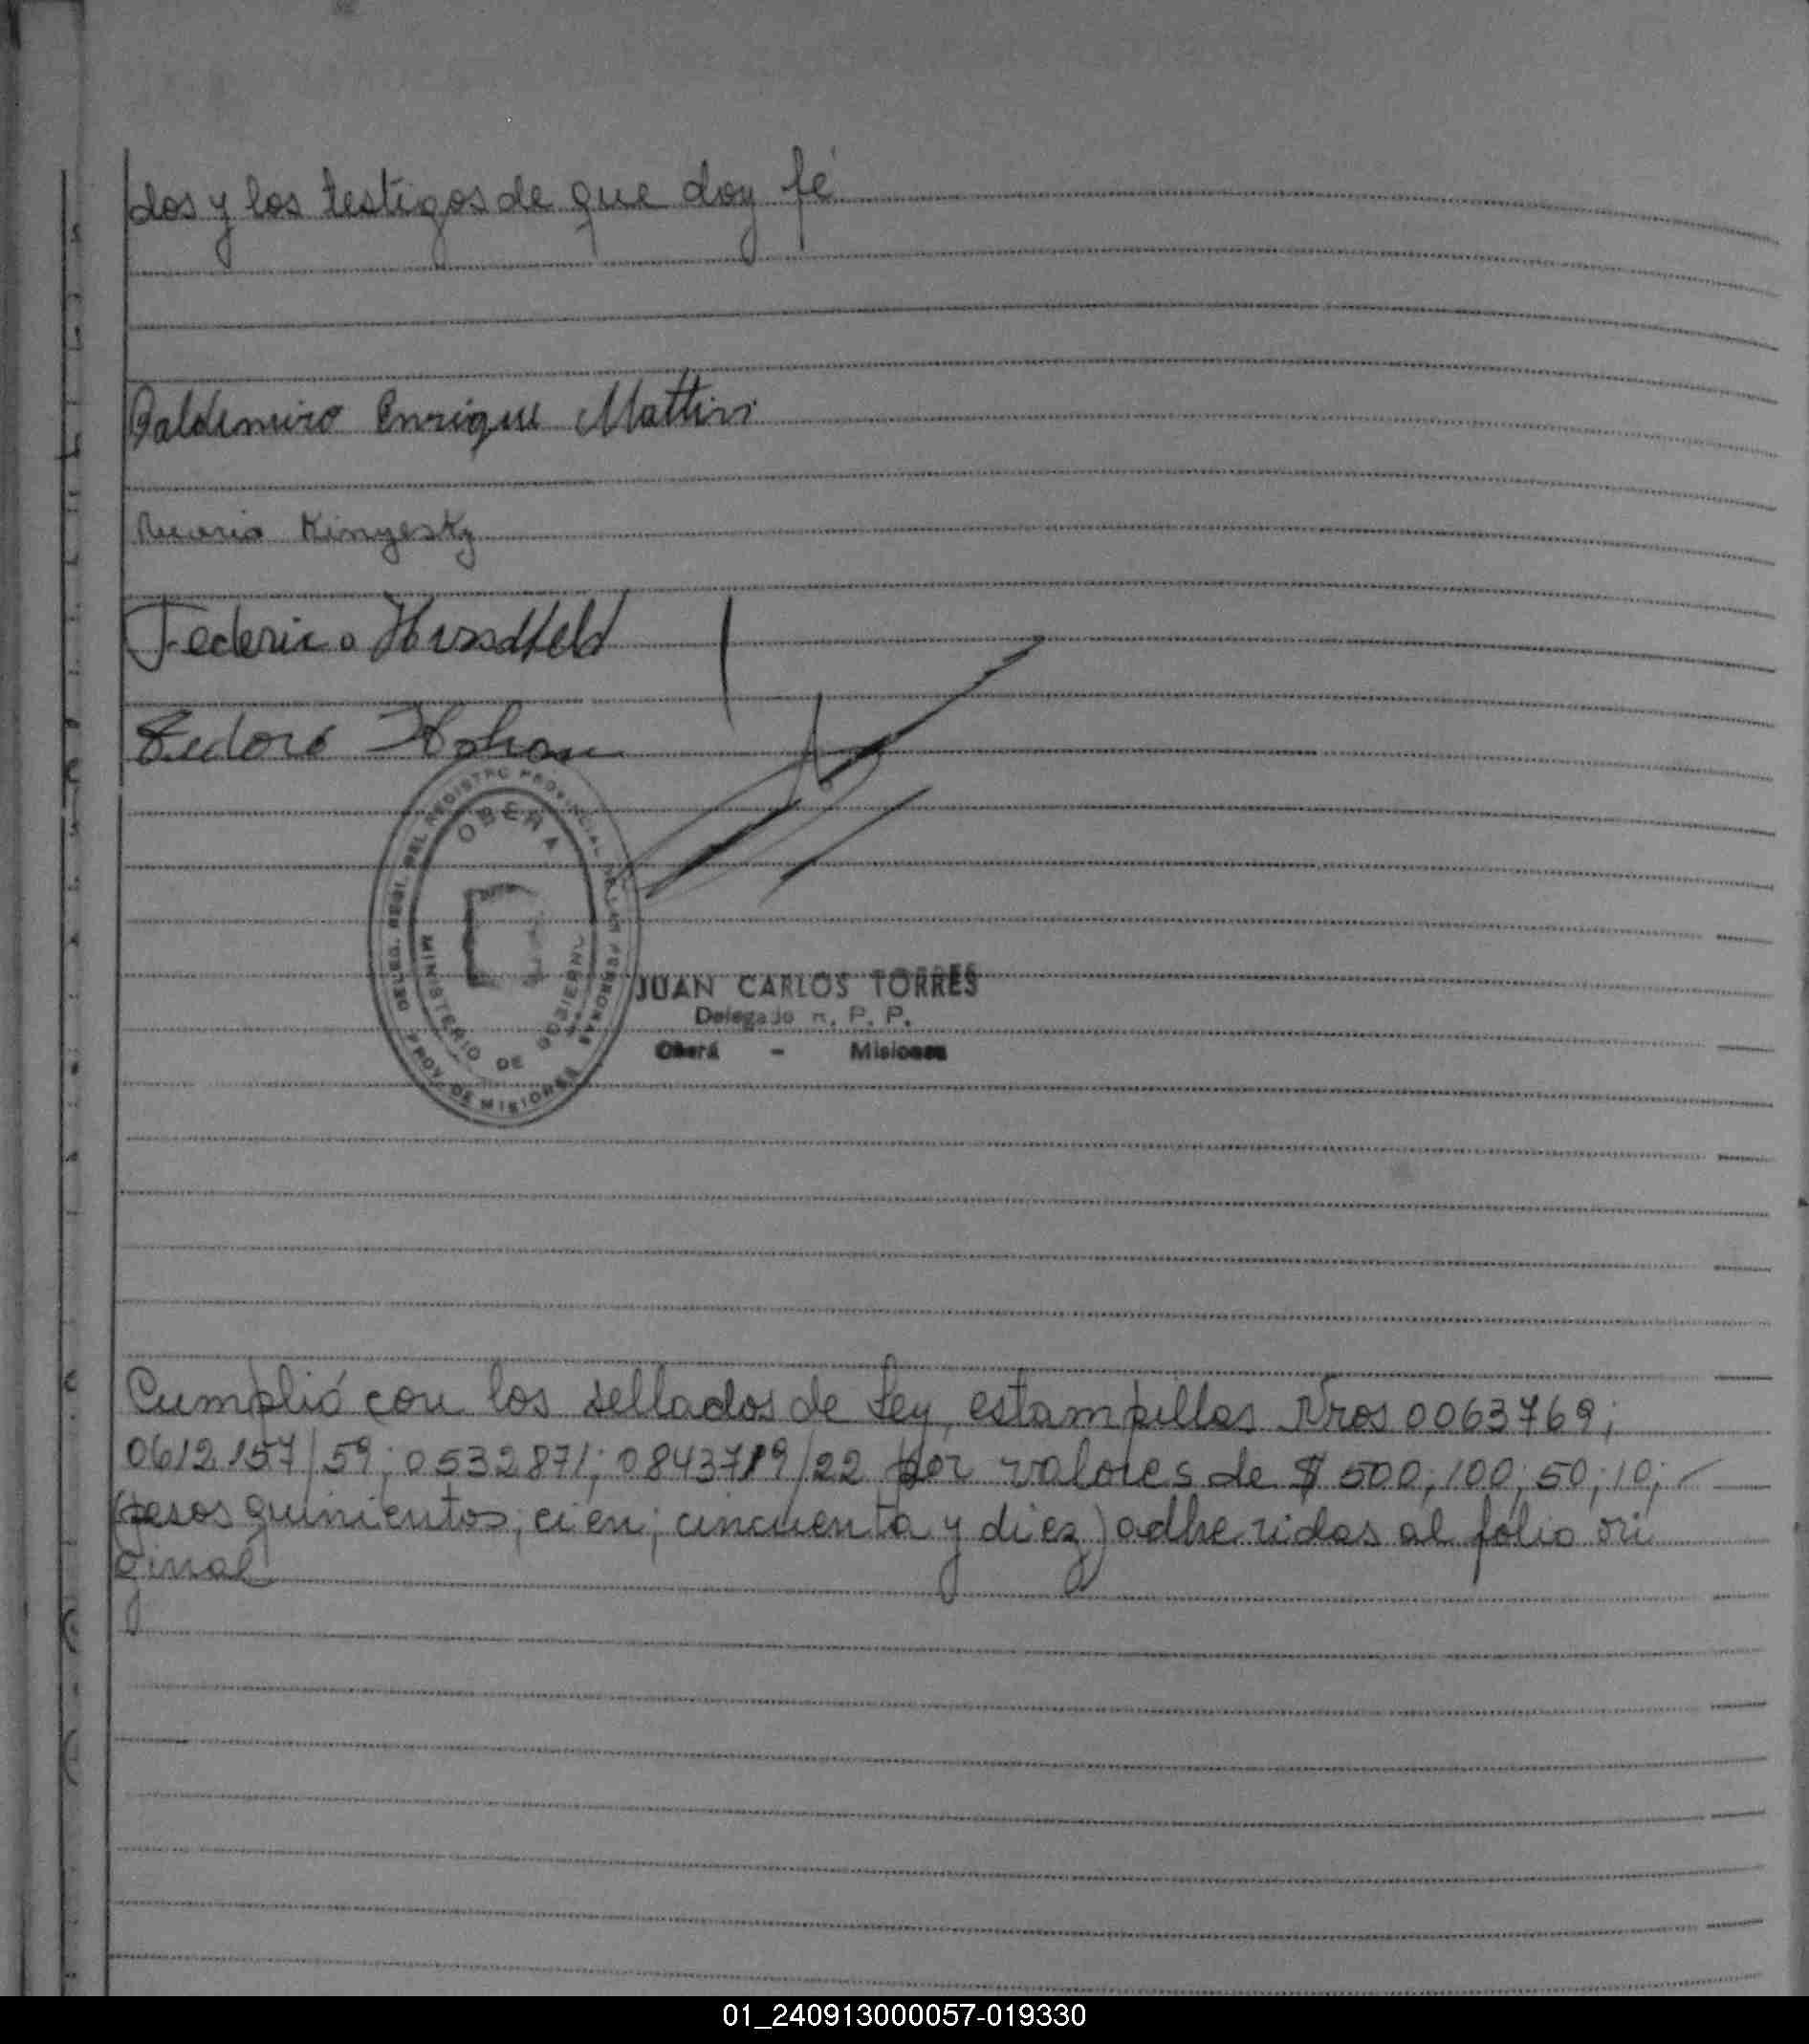 dos y los testigos de que doy fé
Baldimiro Enrique Mattivi
Maria Kinyesky
Federico
OBERA
DELEG. REGI. DEL REGISTRO PROVINCIAL DE LAS PERSONAS
MINISTERIO DE GOBIERNO
PROV. DE MISIONES
JUAN CARLOS TORRES
Delegado R. P. P.
Oberá - Misiones
Cumplió con los sellados de Ley, estampillas Nros 0063769;
0612157/59; 0532871; 0843719/22 por valores de $ 500; 100; 50; 10;
(pesos quinientos; cien; cincuenta y diez) adheridas al folio ori
ginal
01_240913000057-019330